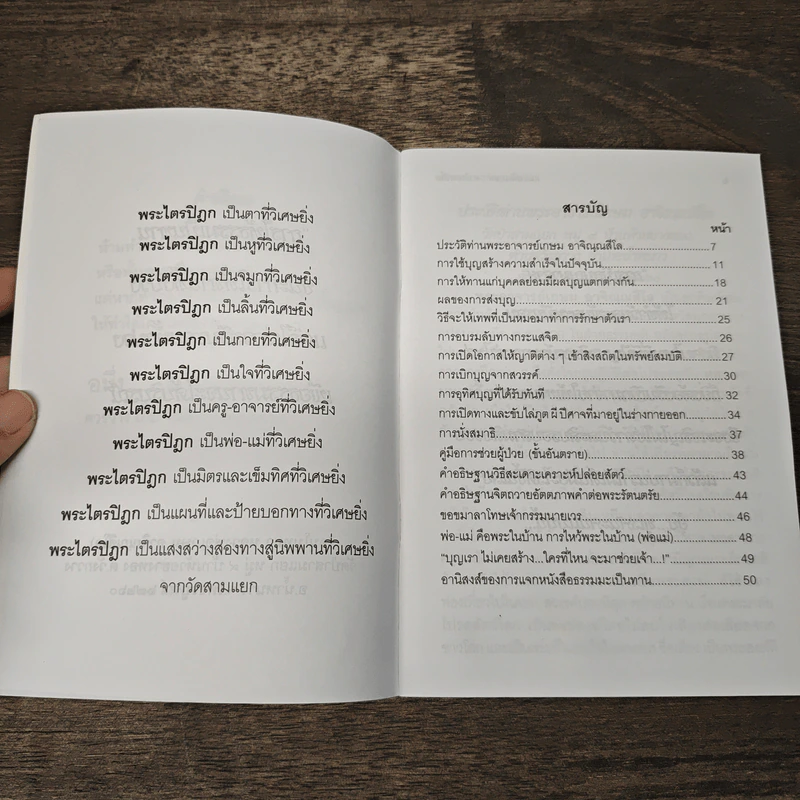 พระไตรปิฎก เป็นตาที่วิเศษยิ่ง
พระไตรปิฎก เป็นหูที่วิเศษยิ่ง
พระไตรปิฎก เป็นจมูกที่วิเศษยิ่ง
พระไตรปิฎก เป็นลิ้นที่วิเศษยิ่ง
พระไตรปิฎก เป็นกายที่วิเศษยิ่ง
พระไตรปิฎก เป็นใจที่วิเศษยิ่ง
พระไตรปิฎก เป็นครู-อาจารย์ที่วิเศษยิ่ง
พระไตรปิฎก เป็นพ่อ-แม่ที่วิเศษยิ่ง
พระไตรปิฎก เป็นมิตรและเข็มทิศที่วิเศษยิ่ง
พระไตรปิฎก เป็นแผนที่และป้ายบอกทางที่วิเศษยิ่ง
พระไตรปิฎก เป็นแสงสว่างส่องทางสู่นิพพานที่วิเศษยิ่ง
จากวัดสามแยก
สารบัญ
หน้า
ประวัติท่านพระอาจารย์เกษม อาจิณฺณสีโล.......................7
การใช้บุญสร้างความสำเร็จในปัจจุบัน..............................11
การให้ทานแก่บุคคลย่อมมีผลบุญแตกต่างกัน.......................18
ผลของการส่งบุญ......................................................... 21
วิธีจะให้เทพที่เป็นหมอมาทำการรักษาตัวเรา.......................25
การอบรมลับทางกระแสจิต.............................................26
การเปิดโอกาสให้ญาติต่าง ๆ เข้าสิงสถิตในทรัพย์สมบัติ..........27
การเบิกบุญจากสวรรค์..................................................30
การอุทิศบุญที่ได้รับทันที ..............................................32
การเปิดทางและขับไล่ภูต ผี ปีศาจที่มาอยู่ในร่างกายออก...........34
การนั่งสมาธิ...............................................................37
คู่มือการช่วยผู้ป่วย (ขั้นอันตราย)......................................38
คำอธิษฐานวิธีสะเดาะเคราะห์ปล่อยสัตว์..............................43
คำอธิษฐานจิตถวายอัตตภาพคำต่อพระรัตนตรัย.....................44
ขอขมาลาโทษเจ้ากรรมนายเวร.........................................46
พ่อ-แม่ คือพระในบ้าน การไหว้พระในบ้าน (พ่อแม่)................48
"บุญเรา ไม่เคยสร้าง...ใครที่ไหน จะมาช่วยเจ้า...!"..................49
อานิสงส์ของการแจกหนังสือธรรมมะเป็นทาน........................50